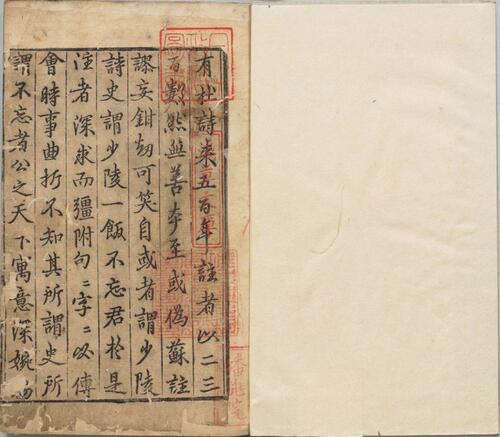 有杜詩来五百年註者以二三
百數然無善本至或偽蘇註
謬妄鉗刼可笑自或者謂少陵
詩史謂少陵一飯不忘君於是
注者深求而彊附句〻字〻必傳
會時事曲折不知其所謂史所
謂不忘者公之天下寓意深婉